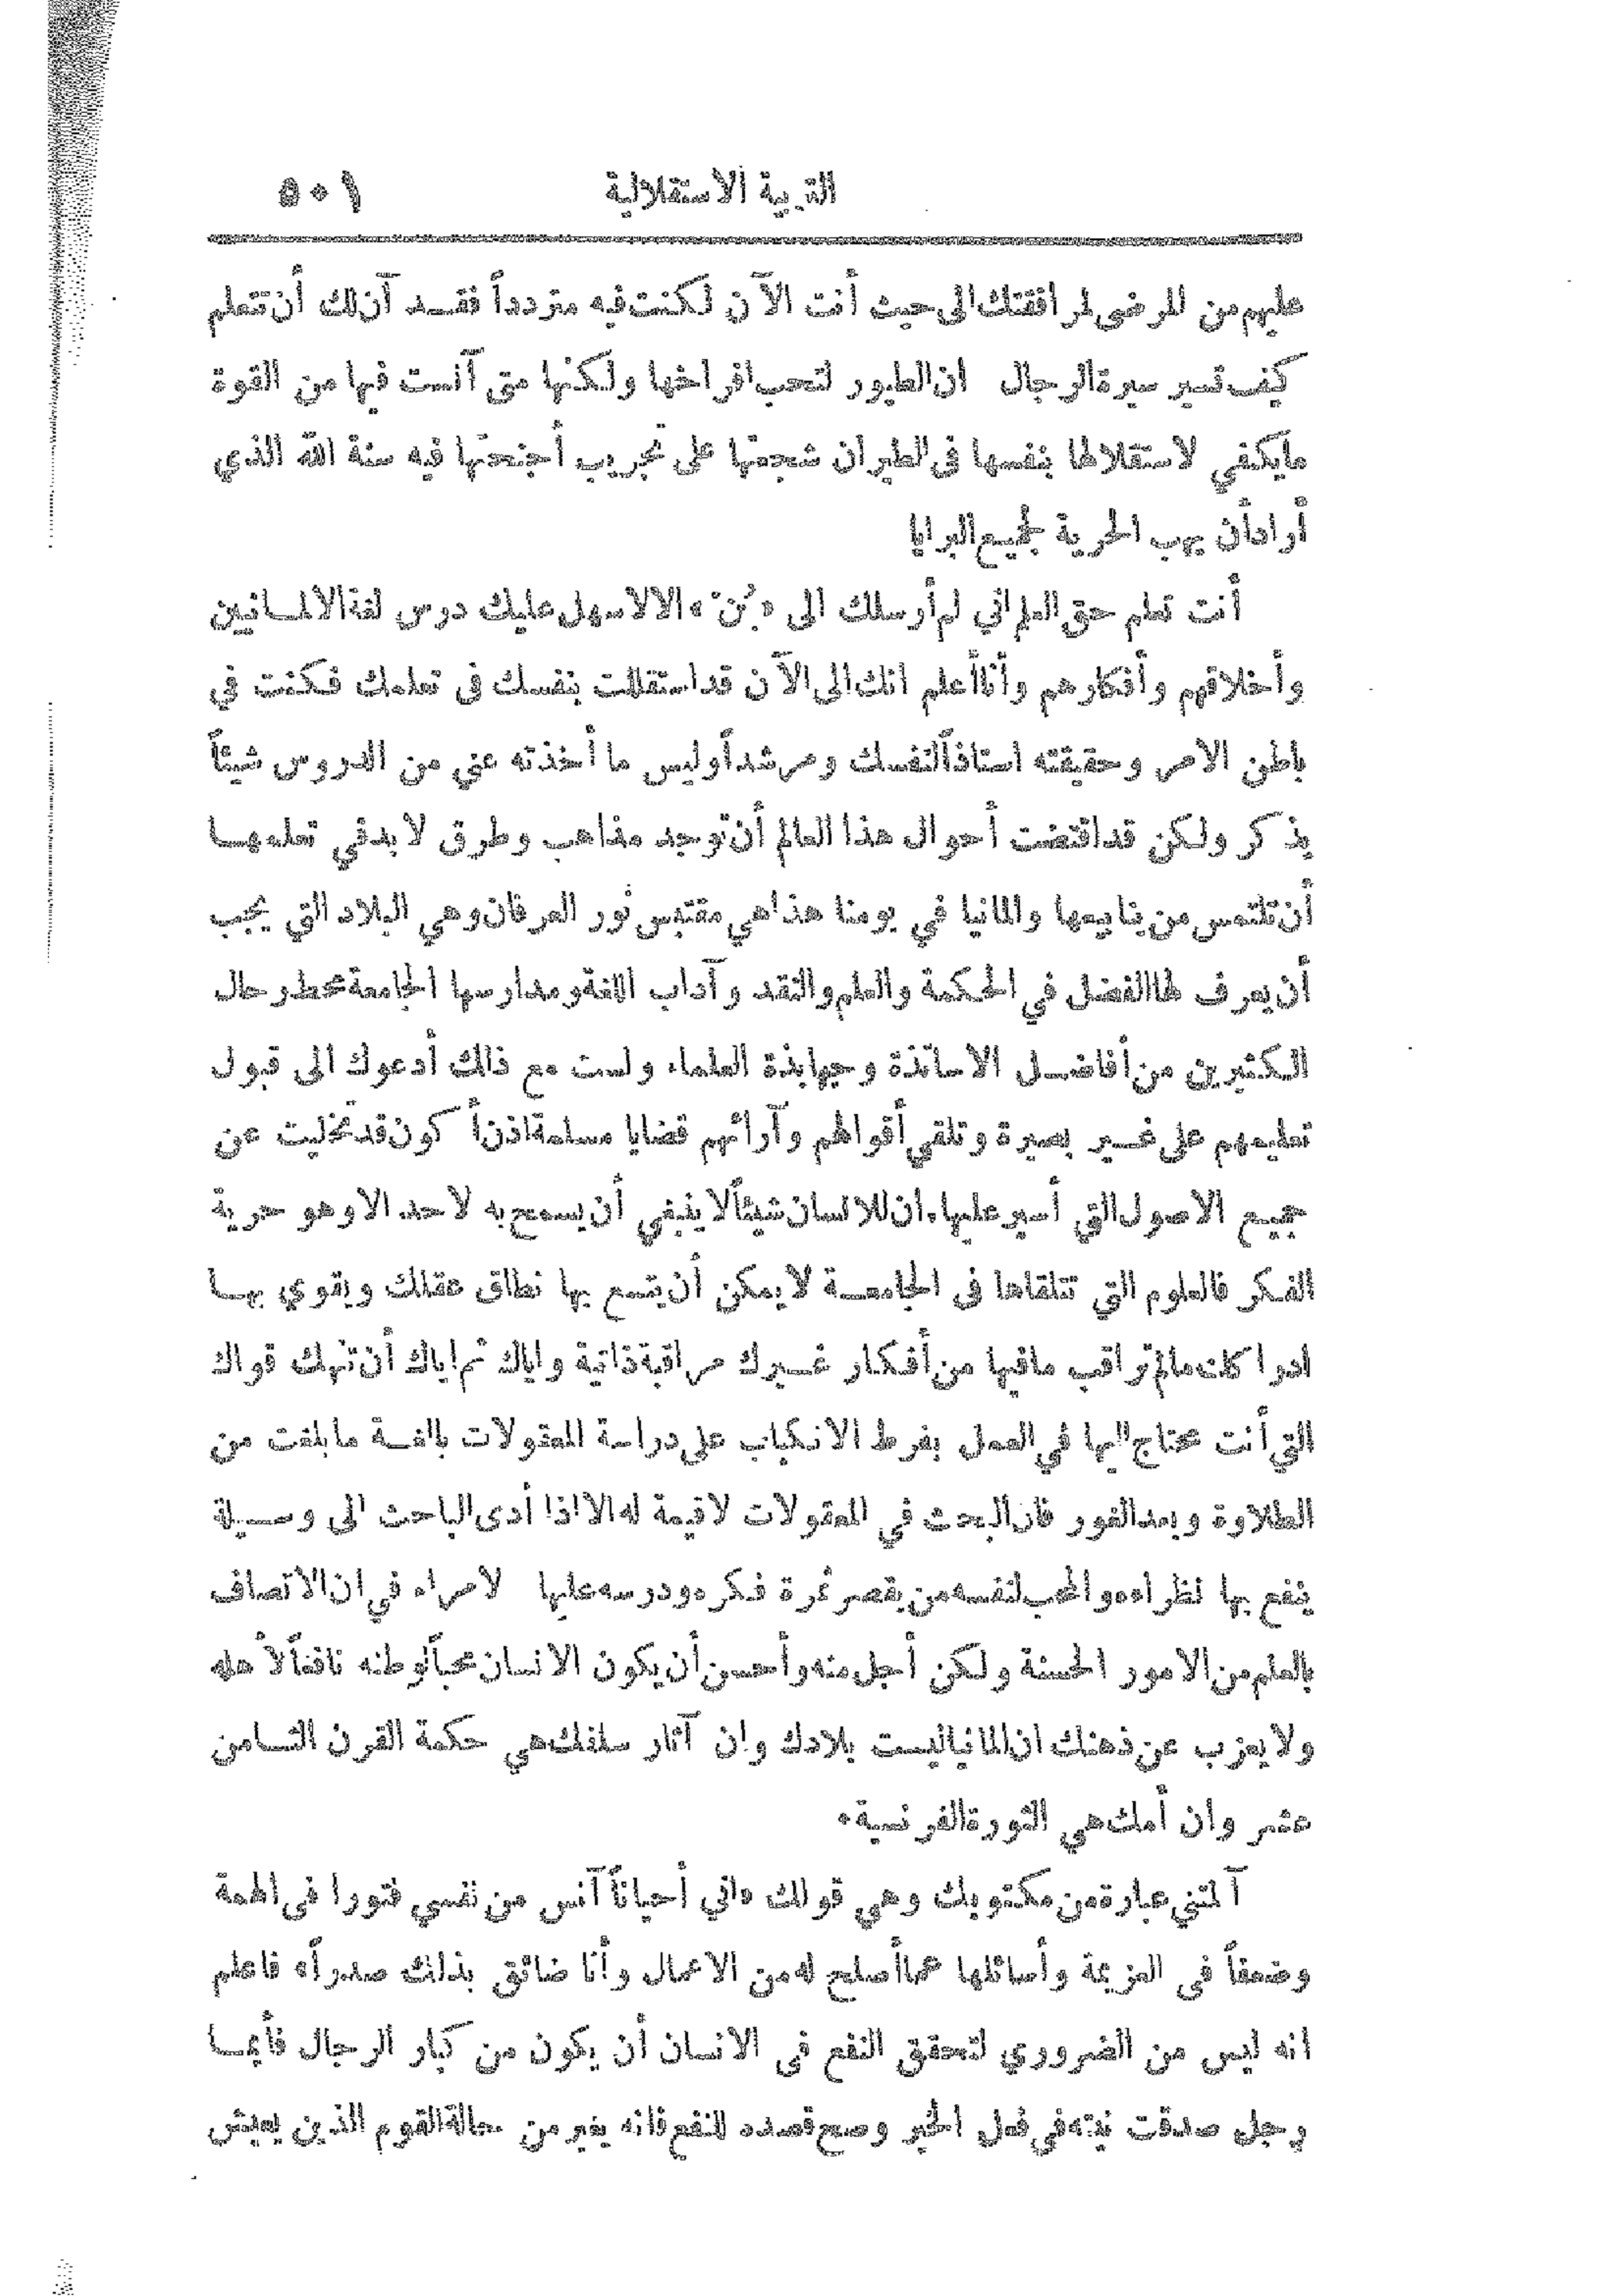 التربية الاستقلالية ٥٠١
عليهم من المرضى لمرافقتك الى حيث أنت الآن لكنت فيه مترددا فقد آن لك أن تتعلم
كيف تسير سيرة الرجال ان الطيور لتحب افراخها ولكنها متى آنست فيها من القوة
مايكفي لاستقلالها بنفسها فى الطيران شجعتها على تجريب أجنحتها فيه سنة الله الذي
أراد أن يهب الحرية لجميع البرايا
أنت تعلم حق العلم اني لم أرسلك الى «بُن» الا لاسهل عليك درس لغة الالمانيين
وأخلاقهم وأفكارهم وأنا أعلم انك الى الآن قد استقللت بنفسك فى تعلمك فكنت في
باطن الامر وحقيقته استاذاً لنفسك ومرشداً وليس ما أخذته عني من الدروس شيئاً
يذكر ولكن قد اقتضت أحوال هذا العالم أن توجد مذاهب وطرق لا بد في تعلمها
أن تلتمس من ينابيعها والمانيا في يومنا هذا هي مقتبس نور العرفان وهي البلاد التي يجب
أن يعرف لها الفضل في الحكمة والعلم والنقد وآداب اللغة ومدارسها الجامعة محط رحال
الكثيرين من أفاضل الاساتذة وجهابذة العلماء ولست مع ذلك أدعوك الى قبول
تعليمهم على غير بصيرة وتلقي أقوالهم وآرائهم قضايا مسلمة اذن أكون قد تخليت عن
جميع الاصول التي أسير عليها، ان للانسان شيئاً لا ينبغي أن يسمح به لاحد الا وهو حرية
الفكر فالعلوم التي تتلقاها فى الجامعة لا يمكن أن يتسع بها نطاق عقلك ويقوي بها
ادراكك مالم تراقب مافيها من أفكار غيرك مراقبة ذاتية واياك ثم اياك أن تنهك قواك
التي أنت محتاج اليها في العمل بفرط الانكباب على دراسة المعقولات بالغة ما بلغت من
الطلاوة وبعد الغور فان البحث في المعقولات لا قيمة له الا اذا أدى الباحث الى وسيلة
ينفع بها نظراءه والمحب لنفسه من يقصر ثمرة فكره ودرسه عليها لا مراء في ان الاتصاف
بالعلم من الامور الحسنة ولكن أجل منه وأحسن أن يكون الانسان محباً لوطنه نافعاً لأهله
ولا يعزب عن ذهنك ان المانيا ليست بلادك وان آثار سلفك هي حكمة القرن الثامن
عشر وان أمك هي الثورة الفرنسية ٠
آلمتني عبارة من مكتوبك وهي قولك «اني أحياناً آنس من نفسي فتورا فى الهمة
وضعفاً فى العزيمة وأسائلها عما أصلح له من الاعمال وأنا ضائق بذلك صدراً» فاعلم
انه ليس من الضروري لتحقق النفع فى الانسان أن يكون من كبار الرجال فأيما
رجل صدقت نيته في فعل الخير وصح قصده للنفع فانه يغير من حالة القوم الذين يعيش